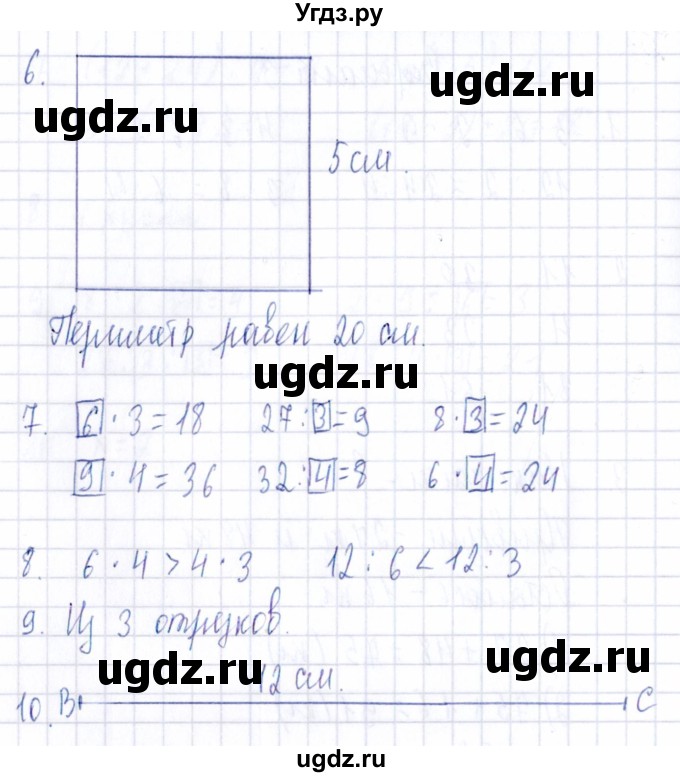 Угдз.ру
6.
ugdz.ru
ugdz.ru
5 см.
Периметр равен 20 см.
ugdz.ru
7. 6 · 3 = 18 27 : 3 = 9 8 · 3 = 24
9 · 4 = 36 32 : 4 = 8 6 · 4 = 24
8. 6 · 4 > 4 · 3 12 : 6 < 12 : 3
9. Из 3 отрезков.
ugdz.ru
ugdz.ru
12 см.
10. В С
ugdz.ru